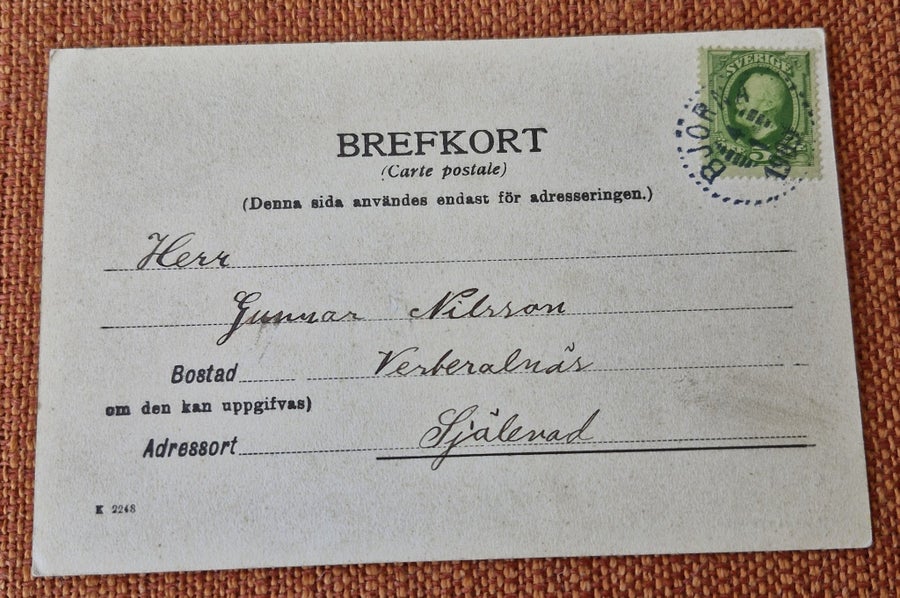 SVERIGE
BREFKORT
(Carte postale)
(Denna sida användes endast för adresseringen.)
Herr
Gunnar Nilsson
Bostad
om den kan uppgifvas)
Adressort Själevad
K 2248